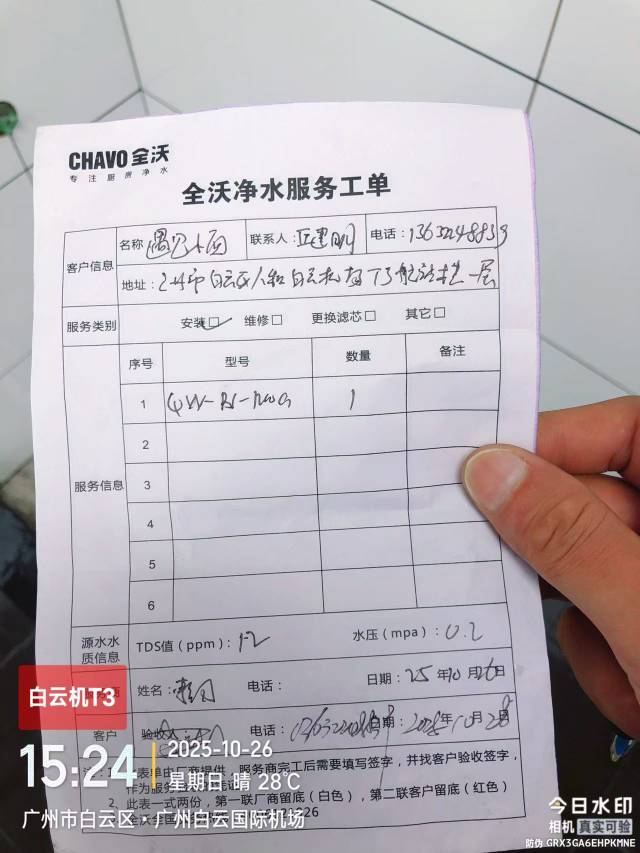 CHAVO 全沃
专注厨房净水
全沃净水服务工单
客户信息
名称 遇见小面 联系人: 明 电话:
地址: 广州市白云区人和白云机场T3航站楼一层
服务类别 安装☑ 维修□ 更换滤芯□ 其它□
服务信息
序号 型号 数量 备注
1 QW- 1
2
3
4
5
6
源水水质信息 TDS值（ppm）: 12 水压（mpa）: 0.2
姓名: 电话: 日期: 25年10月26日
客户 验收人 电话: 日期: 2025年10月26日
表单由厂商提供，服务商完工后需要填写签字，并找客户验收签字，
作为服务
2、此表一式两份，第一联厂商留底（白色），第二联客户留底（红色）
全沃
白云机T3
15:24
2025-10-26
星期日 晴 28℃
广州市白云区·广州白云国际机场
今日水印
相机 真实可验
防伪 GRX3GA6EHPKMNE